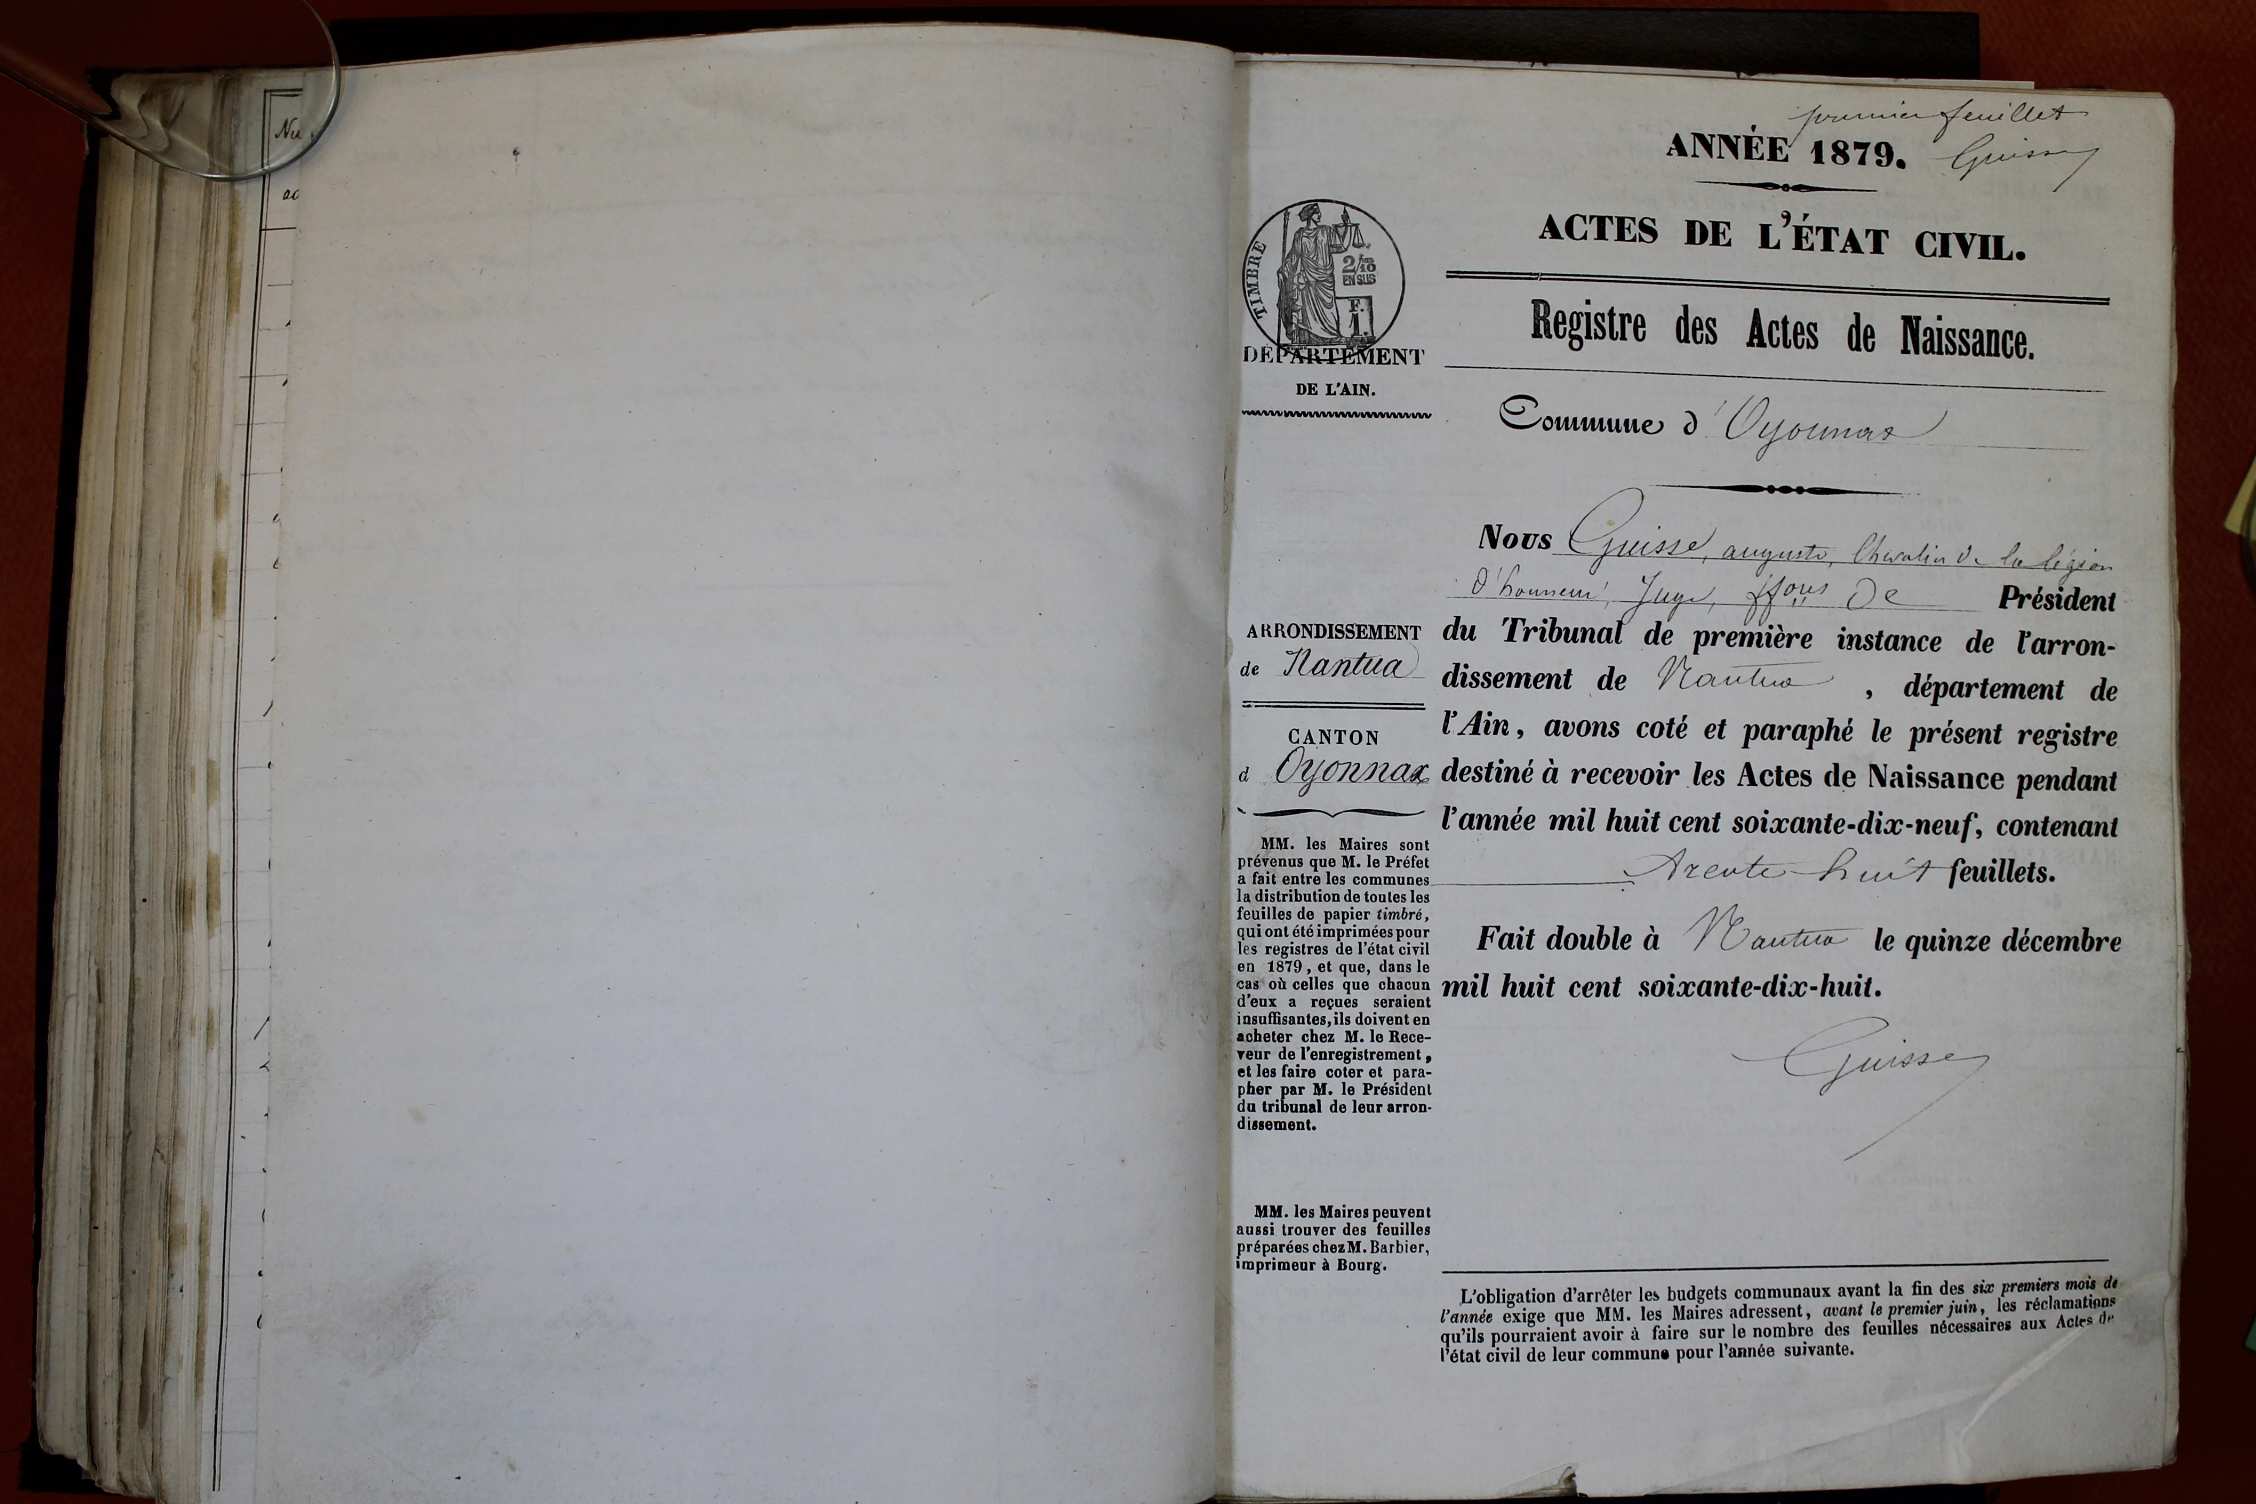 Nu
ac
premier feuillet
ANNÉE 1879. Guisse
ACTES DE L'ÉTAT CIVIL.
Registre des Actes de Naissance.
Commune d'Oyonnax
TIMBRE
2/10
EN SUS
F.
1.
DÉPARTEMENT
DE L'AIN.
ARRONDISSEMENT
de Nantua
CANTON
d Oyonnax
MM. les Maires sont
prévenus que M. le Préfet
a fait entre les communes
la distribution de toutes les
feuilles de papier timbré,
qui ont été imprimées pour
les registres de l'état civil
en 1879, et que, dans le
cas où celles que chacun
d'eux a reçues seraient
insuffisantes, ils doivent en
acheter chez M. le Rece-
veur de l'enregistrement,
et les faire coter et para-
pher par M. le Président
du tribunal de leur arron-
dissement.
MM. les Maires peuvent
aussi trouver des feuilles
préparées chez M. Barbier,
imprimeur à Bourg.
Nous Guisse, auguste, Chevalier de la légion
d'honneur, Juge, ffons de Président
du Tribunal de première instance de l'arron-
dissement de Nantua, département de
l'Ain, avons coté et paraphé le présent registre
destiné à recevoir les Actes de Naissance pendant
l'année mil huit cent soixante-dix-neuf, contenant
trente-huit feuillets.
Fait double à Nantua le quinze décembre
mil huit cent soixante-dix-huit.
Guisse
L'obligation d'arrêter les budgets communaux avant la fin des six premiers mois de
l'année exige que MM. les Maires adressent, avant le premier juin, les réclamations
qu'ils pourraient avoir à faire sur le nombre des feuilles nécessaires aux Actes de
l'état civil de leur commune pour l'année suivante.